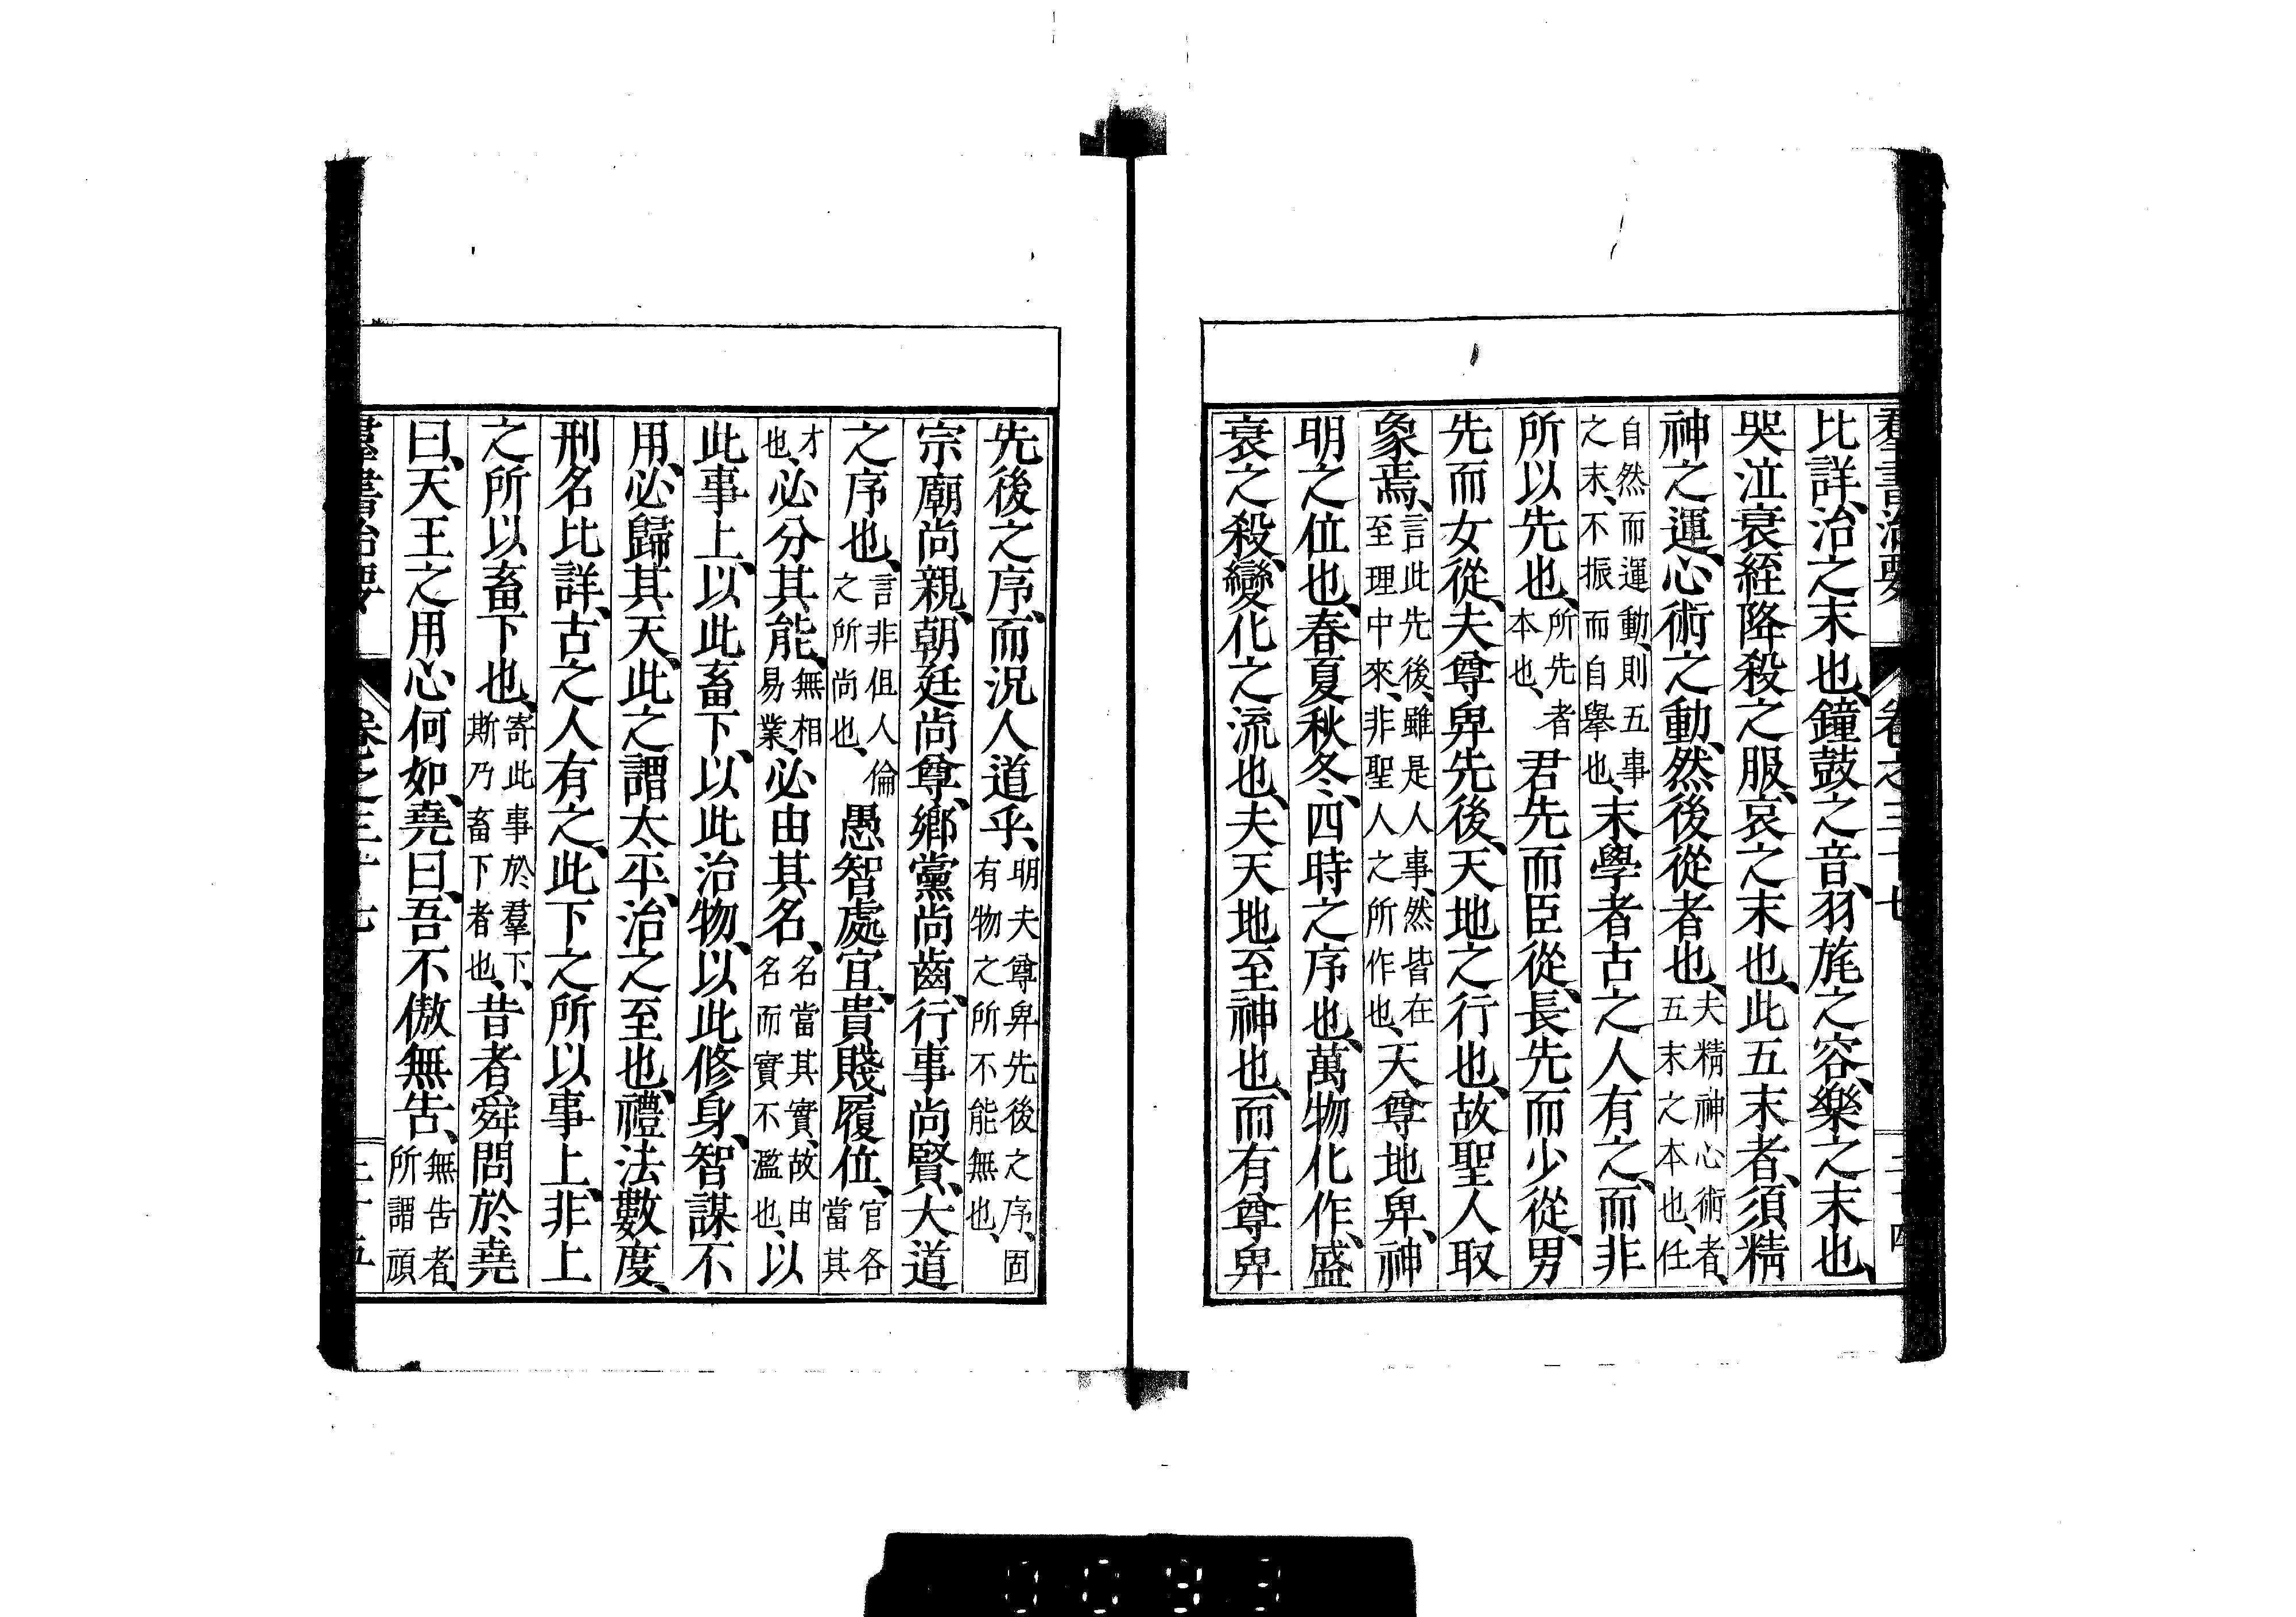 羣書治要 卷之三十七 三十四
比詳、治之末也、鐘鼓之音、羽旄之容、樂之末也、
哭泣衰絰降殺之服、哀之末也、此五末者、須精
神之運、心術之動、然後從者也、夫精神心術者、五末之本也、任
自然而運動、則五事之末、不振而自擧也、末學者古之人有之、而非
所以先也、所先者本也、君先而臣從、長先而少從、男
先而女從、夫尊卑先後、天地之行也、故聖人取
象焉、言此先後、雖是人事、然皆在至理中來、非聖人之所作也、天尊地卑、神
明之位也、春夏秋冬、四時之序也、萬物化作、盛
衰之殺、變化之流也、夫天地至神也、而有尊卑
先後之序、而況人道乎、明夫尊卑先後之序、固有物之所不能無也、
宗廟尚親、朝廷尚尊、鄉黨尚齒、行事尚賢、大道
之序也、言非但人倫之所尚也、愚智處宜、貴賤履位、官各當其
才也、必分其能、無相易業、必由其名、名當其實、故由名而實不濫也、以
此事上、以此畜下、以此治物、以此修身、智謀不
用、必歸其天、此之謂太平、治之至也、禮法數度、
刑名比詳、古之人有之、此下之所以事上、非上
之所以畜下也、寄此事於羣下、斯乃畜下者也、昔者舜問於堯
曰、天王之用心何如、堯曰、吾不傲無告、無告者、所謂頑
羣書治要 卷之三十七 三十五